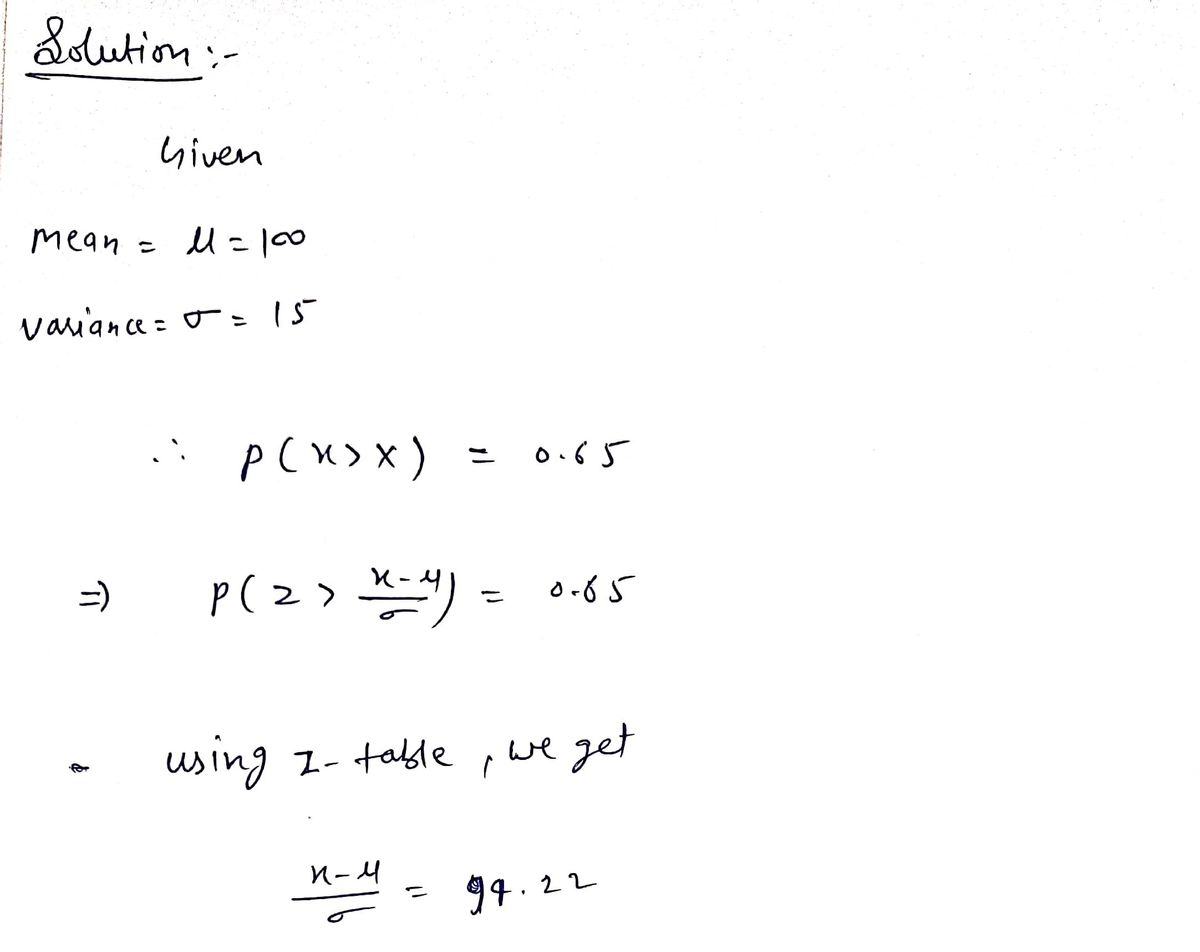 Solution :-
Given
mean = μ = 100
variance = σ = 15
∴ P(x > X) = 0.65
⇒ P(z > (x-μ)/σ) = 0.65
using z-table, we get
(x-μ)/σ = 94.22